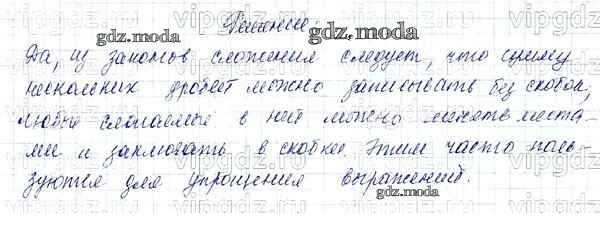 Решение:
gdz.moda
Да, из законов сложения следует, что сумму
нескольких дробей можно записывать без скобок,
любые слагаемые в ней можно менять места-
ми и заключать в скобки. Этим часто поль-
зуются для упрощения выражений.
gdz.moda